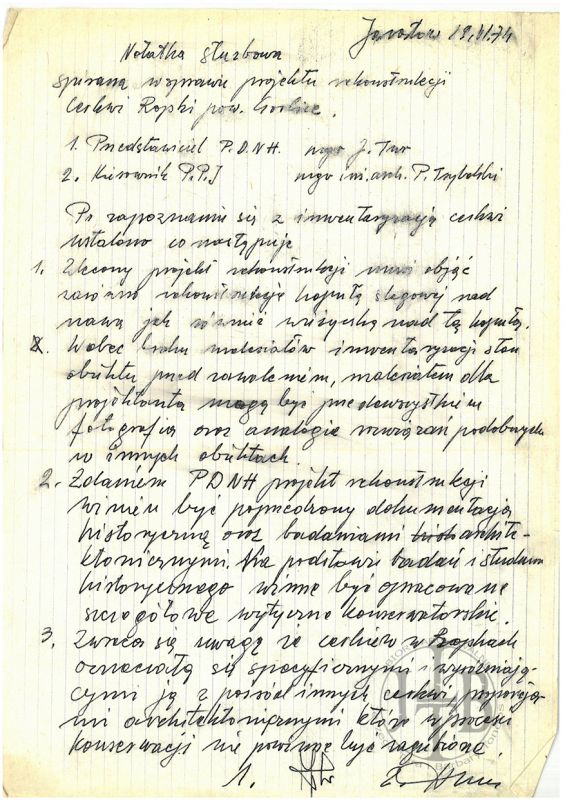 Jarosław 19.VI.74
Notatka służbowa
spisana w sprawie projektu rekonstrukcji
cerkwi Ropki pow. Gorlice.
1. Przedstawiciel P.D.N.H. mgr J. Tur
2. Kierownik P.P.J mgr inż. arch. P.
Po zapoznaniu się z inwentaryzacją cerkwi
ustalono co następuje
1. Zlecony projekt rekonstrukcji musi objąć
zarówno rekonstrukcję kopułą nad
nawą jak również wieżyczką nad tą kopułą.
Wobec braku materiałów inwentaryzacji stan
obiektu przed zawaleniem, materiałem dla
projektanta mogą być przedewszystkiem
fotografią oraz analogie rozwiązań podobnych
w innych obiektach.
2. Zdaniem PDNH projekt rekonstrukcji
winien być poprzedzony dokumentacją
historyczną oraz badaniami archite-
ktonicznymi. Na podstawie badań i studium
historycznego winne być opracowane
szczegółowe wytyczne konserwatorskie.
3. Zwraca się uwagę że cerkiew w Ropkach
oznaczała się specyficznymi i wyróżniają-
cymi ją z pośród innych cerkwi proporcja-
mi architektonicznymi które w procesie
konserwacji nie powinne być zagubione.
1. 2.